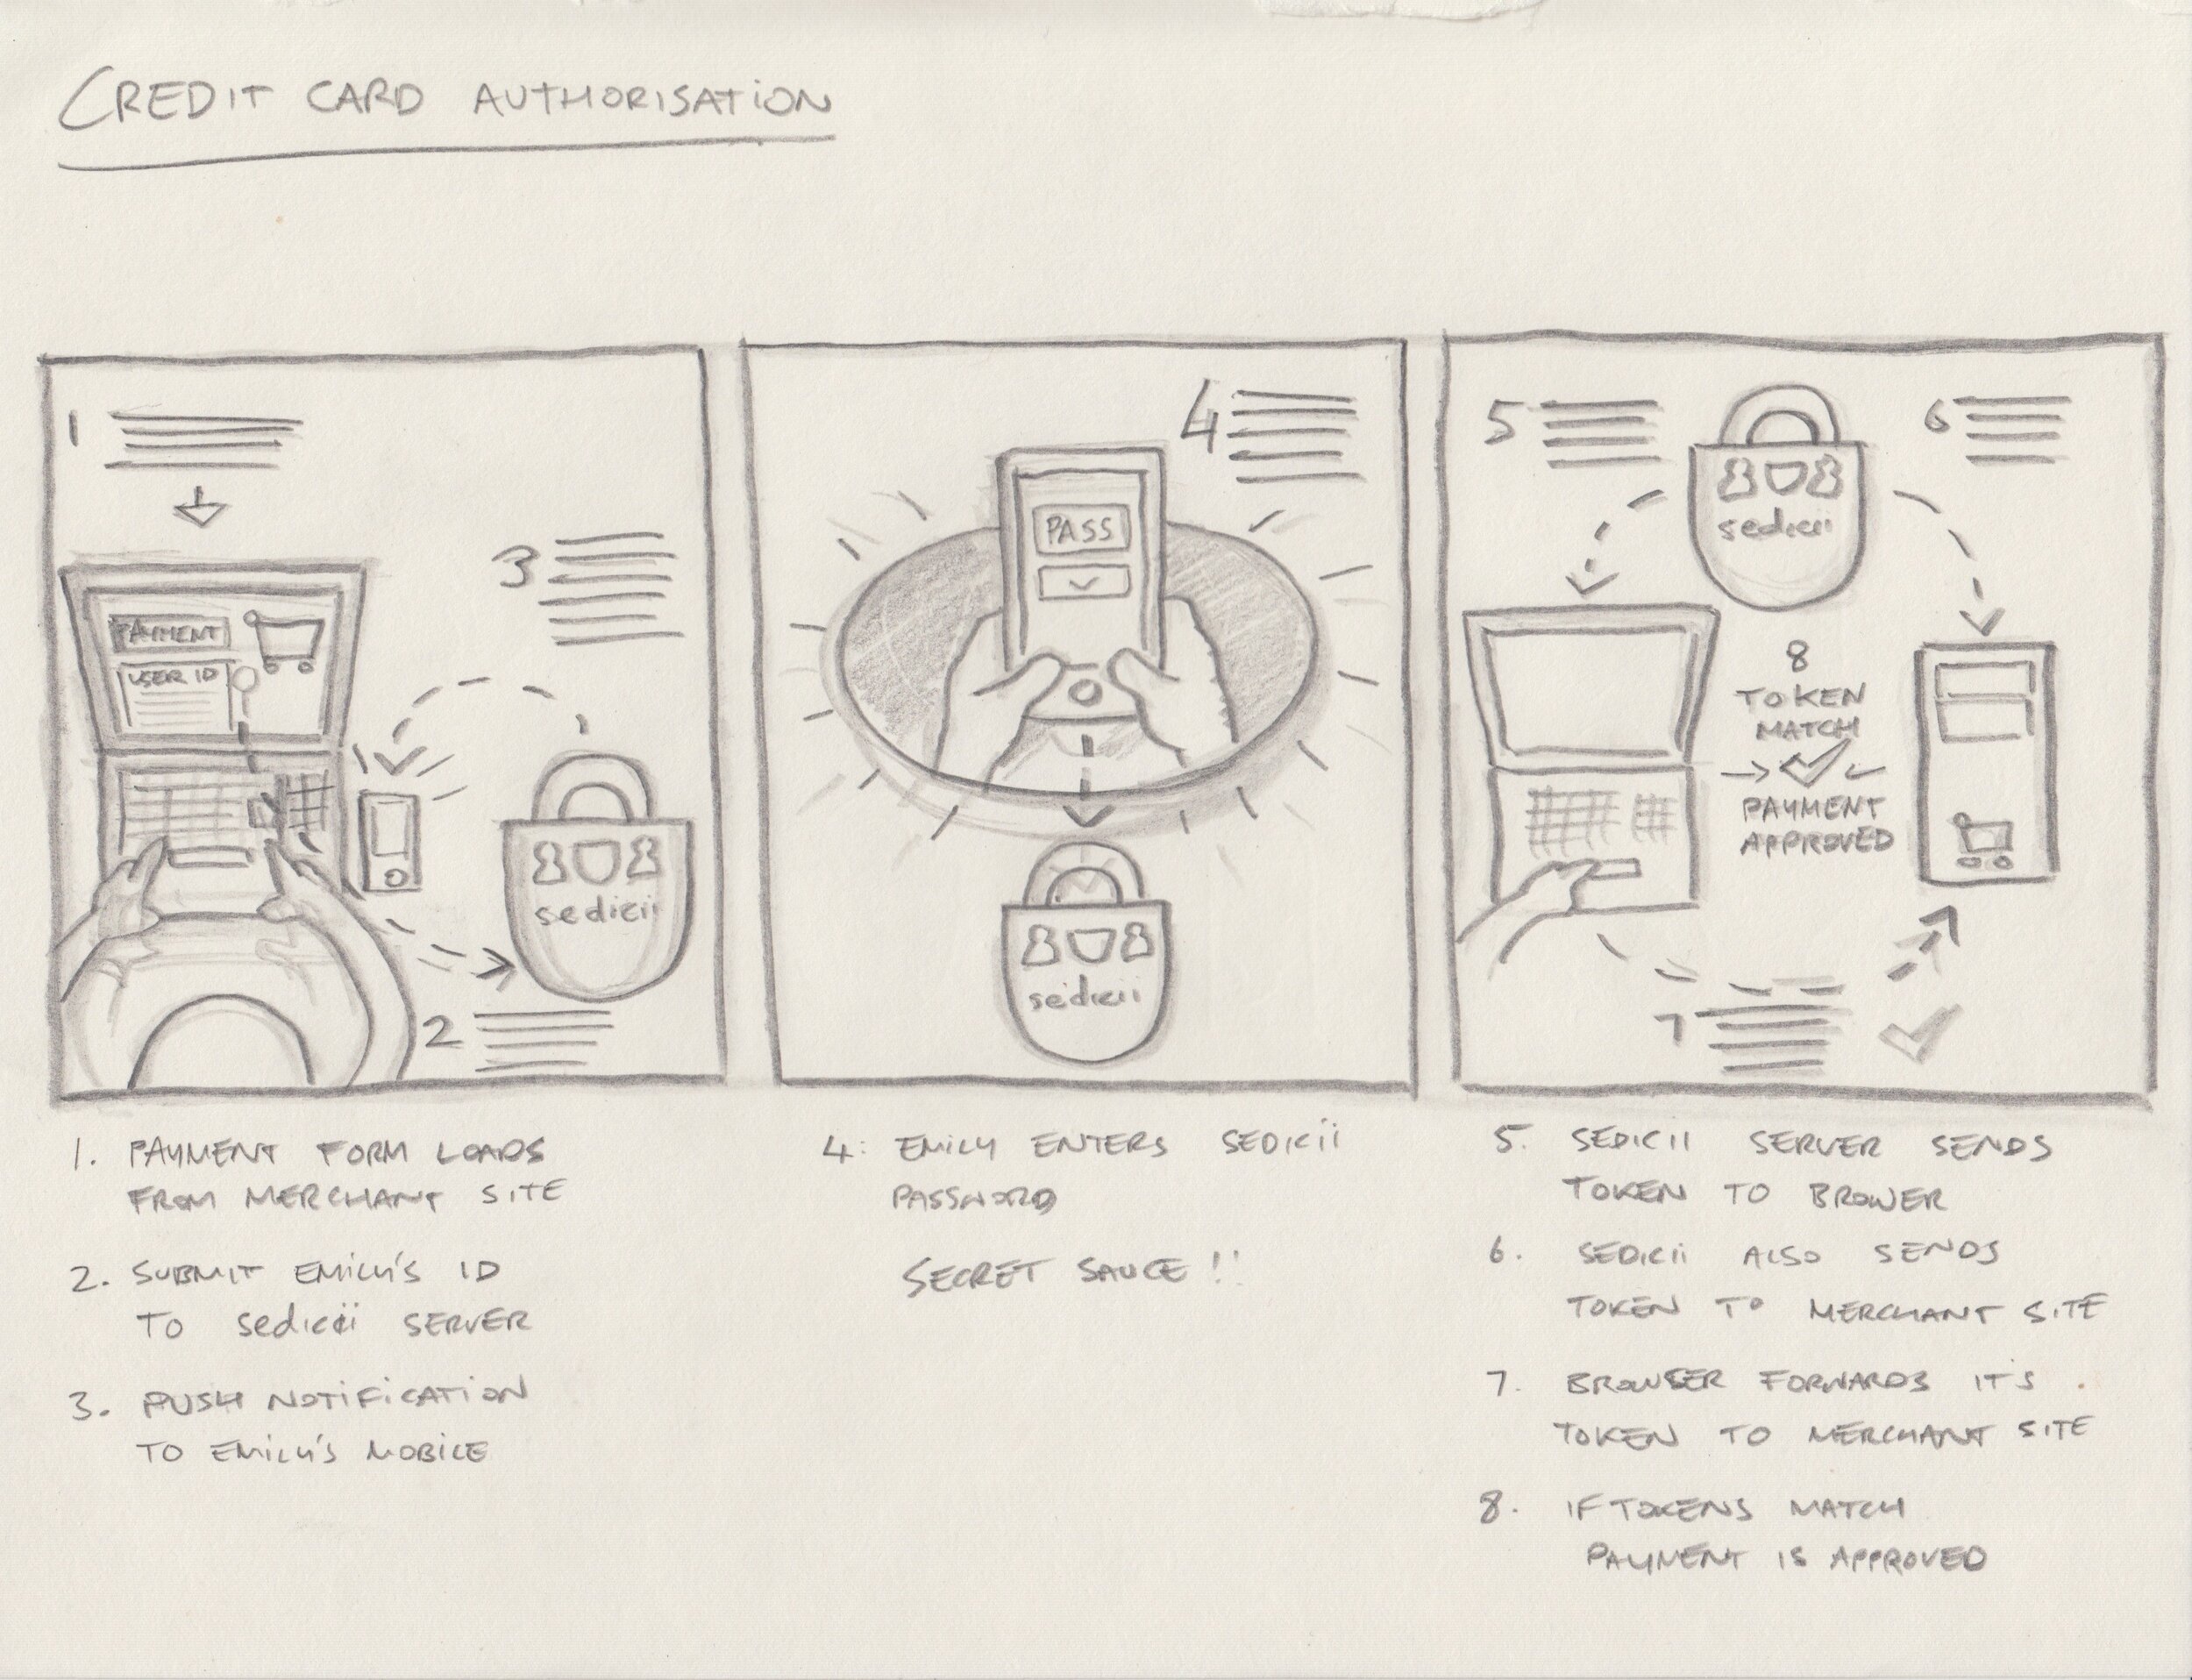 CREDIT CARD AUTHORISATION
1
PAYMENT
USER ID
3
sedicii
2
4
PASS
sedicii
5
6
sedicii
8
TOKEN
MATCH
PAYMENT
APPROVED
7
1. PAYMENT FORM LOADS
FROM MERCHANT SITE
2. SUBMIT EMILY'S ID
TO sedicii SERVER
3. PUSH NOTIFICATION
TO EMILY'S MOBILE
4: EMILY ENTERS SEDICII
PASSWORD
SECRET SAUCE !!
5. SEDICII SERVER SENDS
TOKEN TO BROWER
6. SEDICII ALSO SENDS
TOKEN TO MERCHANT SITE
7. BROWSER FORWARDS IT'S
TOKEN TO MERCHANT SITE
8. IF TOKENS MATCH
PAYMENT IS APPROVED